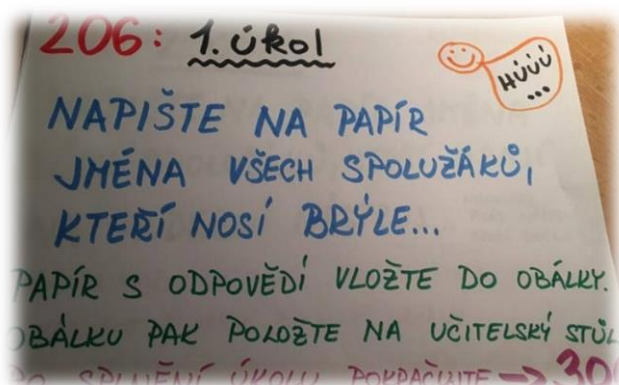 206: 1. úkol
HÚÚÚ
...
NAPIŠTE NA PAPÍR
JMÉNA VŠECH SPOLUŽÁKŮ,
KTEŘÍ NOSÍ BRÝLE...
PAPÍR S ODPOVĚDÍ VLOŽTE DO OBÁLKY.
OBÁLKU PAK POLOŽTE NA UČITELSKÝ STŮL
PO SPLNĚNÍ ÚKOLU POKRAČUJTE →